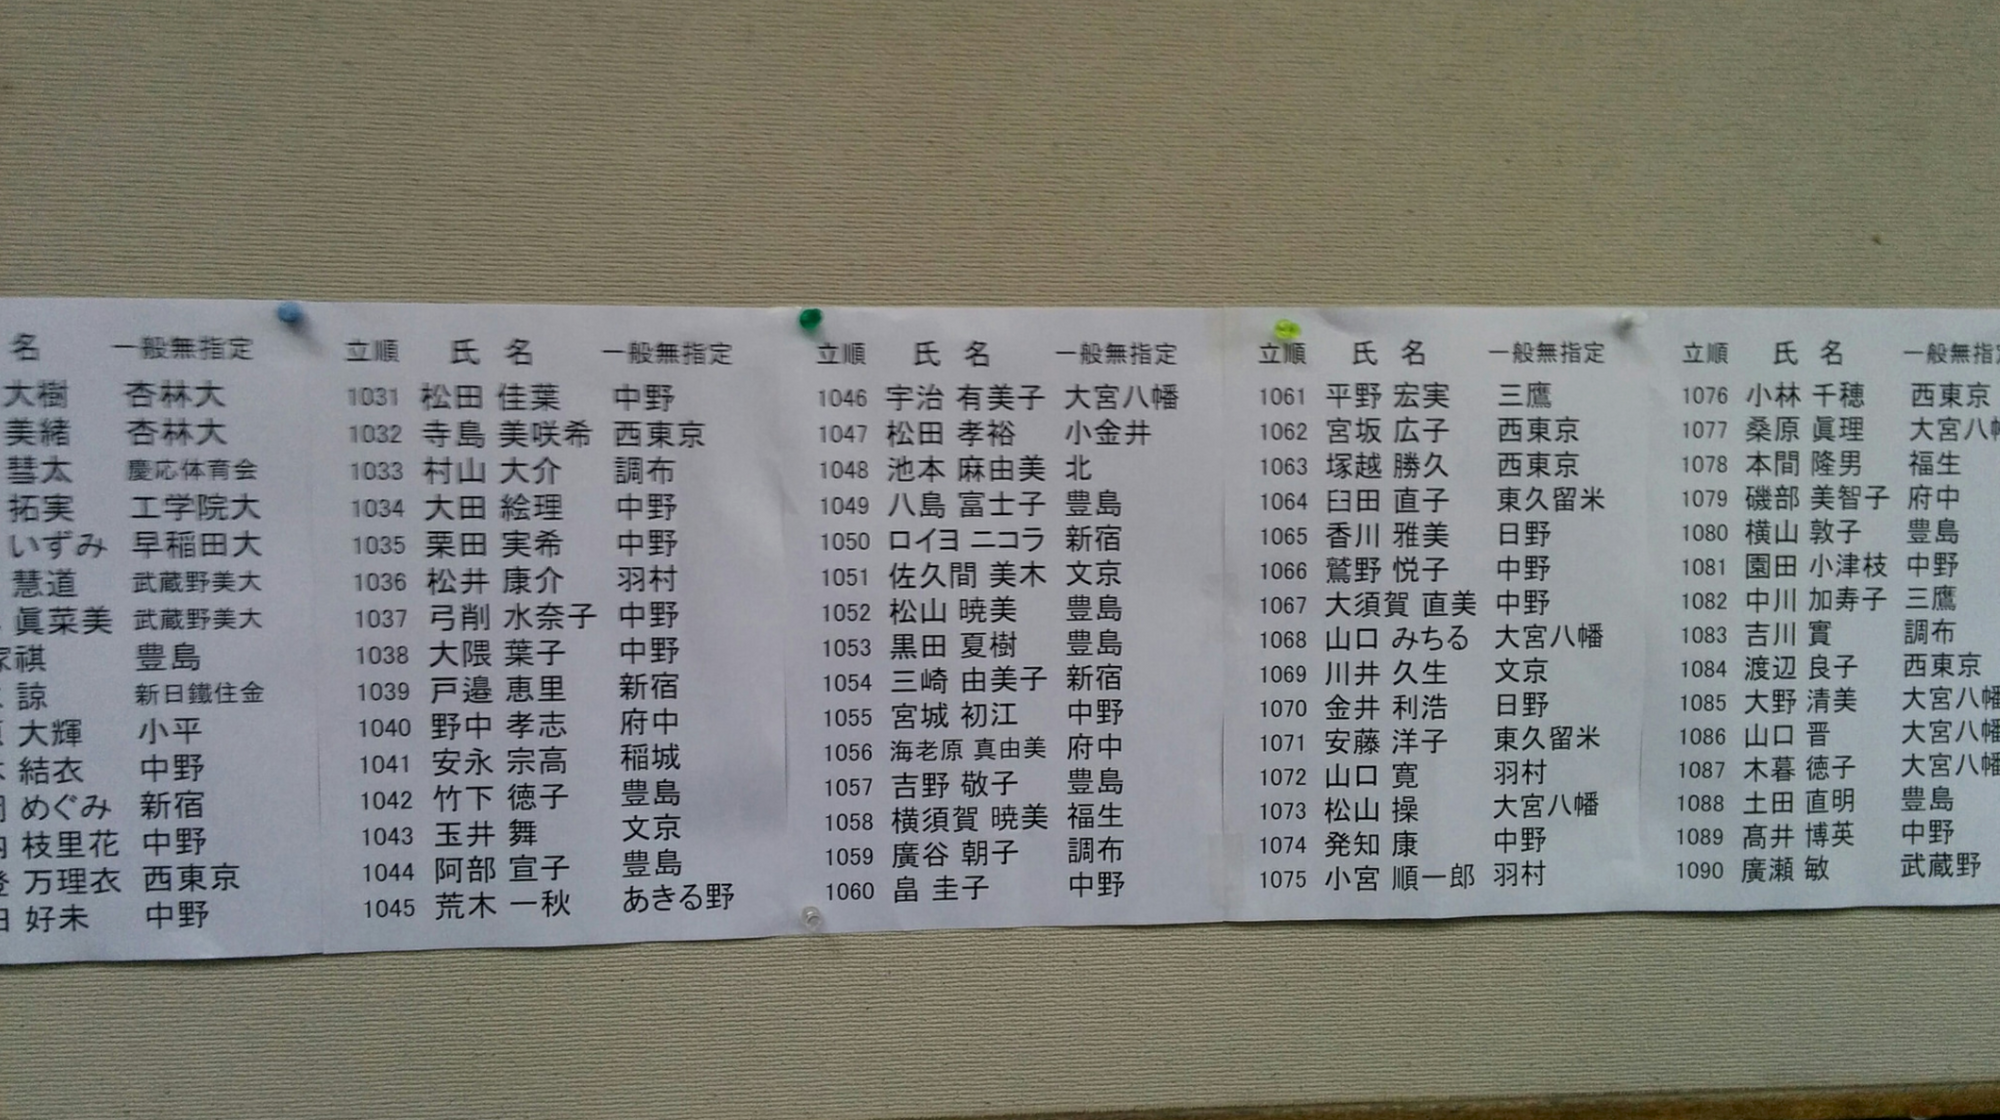 名 一般無指定
大樹 杏林大
美緒 杏林大
彗太 慶応体育会
拓実 工学院大
いずみ 早稲田大
慧道 武蔵野美大
眞菜美 武蔵野美大
祺 豊島
諒 新日鐵住金
大輝 小平
結衣 中野
めぐみ 新宿
枝里花 中野
万理衣 西東京
好未 中野
立順 氏 名 一般無指定
1031 松田 佳葉 中野
1032 寺島 美咲希 西東京
1033 村山 大介 調布
1034 大田 絵理 中野
1035 栗田 実希 中野
1036 松井 康介 羽村
1037 弓削 水奈子 中野
1038 大隈 葉子 中野
1039 戸邉 恵里 新宿
1040 野中 孝志 府中
1041 安永 宗高 稲城
1042 竹下 徳子 豊島
1043 玉井 舞 文京
1044 阿部 宣子 豊島
1045 荒木 一秋 あきる野
立順 氏 名 一般無指定
1046 宇治 有美子 大宮八幡
1047 松田 孝裕 小金井
1048 池本 麻由美 北
1049 八島 富士子 豊島
1050 ロイヨ ニコラ 新宿
1051 佐久間 美木 文京
1052 松山 暁美 豊島
1053 黒田 夏樹 豊島
1054 三崎 由美子 新宿
1055 宮城 初江 中野
1056 海老原 真由美 府中
1057 吉野 敬子 豊島
1058 横須賀 暁美 福生
1059 廣谷 朝子 調布
1060 畠 圭子 中野
立順 氏 名 一般無指定
1061 平野 宏実 三鷹
1062 宮坂 広子 西東京
1063 塚越 勝久 西東京
1064 臼田 直子 東久留米
1065 香川 雅美 日野
1066 鷲野 悦子 中野
1067 大須賀 直美 中野
1068 山口 みちる 大宮八幡
1069 川井 久生 文京
1070 金井 利浩 日野
1071 安藤 洋子 東久留米
1072 山口 寛 羽村
1073 松山 操 大宮八幡
1074 発知 康 中野
1075 小宮 順一郎 羽村
立順 氏 名 一般無指定
1076 小林 千穂 西東京
1077 桑原 眞理 大宮八幡
1078 本間 隆男 福生
1079 磯部 美智子 府中
1080 横山 敦子 豊島
1081 園田 小津枝 中野
1082 中川 加寿子 三鷹
1083 吉川 實 調布
1084 渡辺 良子 西東京
1085 大野 清美 大宮八幡
1086 山口 晋 大宮八幡
1087 木暮 徳子 大宮八幡
1088 土田 直明 豊島
1089 髙井 博英 中野
1090 廣瀬 敏 武蔵野